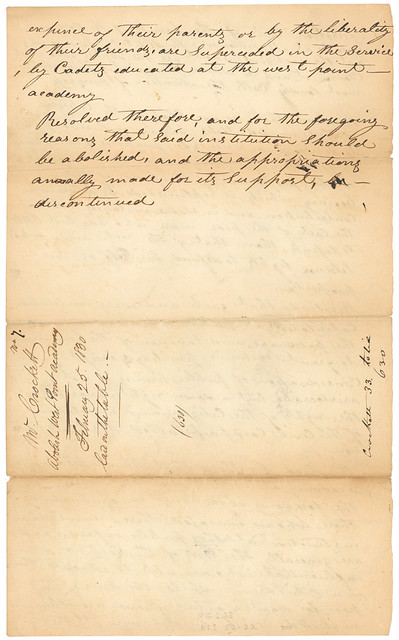 expince of their parents or by the liberality
of their friends, are Superceded in the Service
by Cadets educated at the west point
academy
Resolved therefore, and for the foregoing
reasons that Said institution Should
be abolished, and the appropriations
anually made for its Support, be
discontinued
No 7.
Mr Crockett
Abolish West Point Academy
February 25. 1830
Laid on the table.
Crockett 33.
630